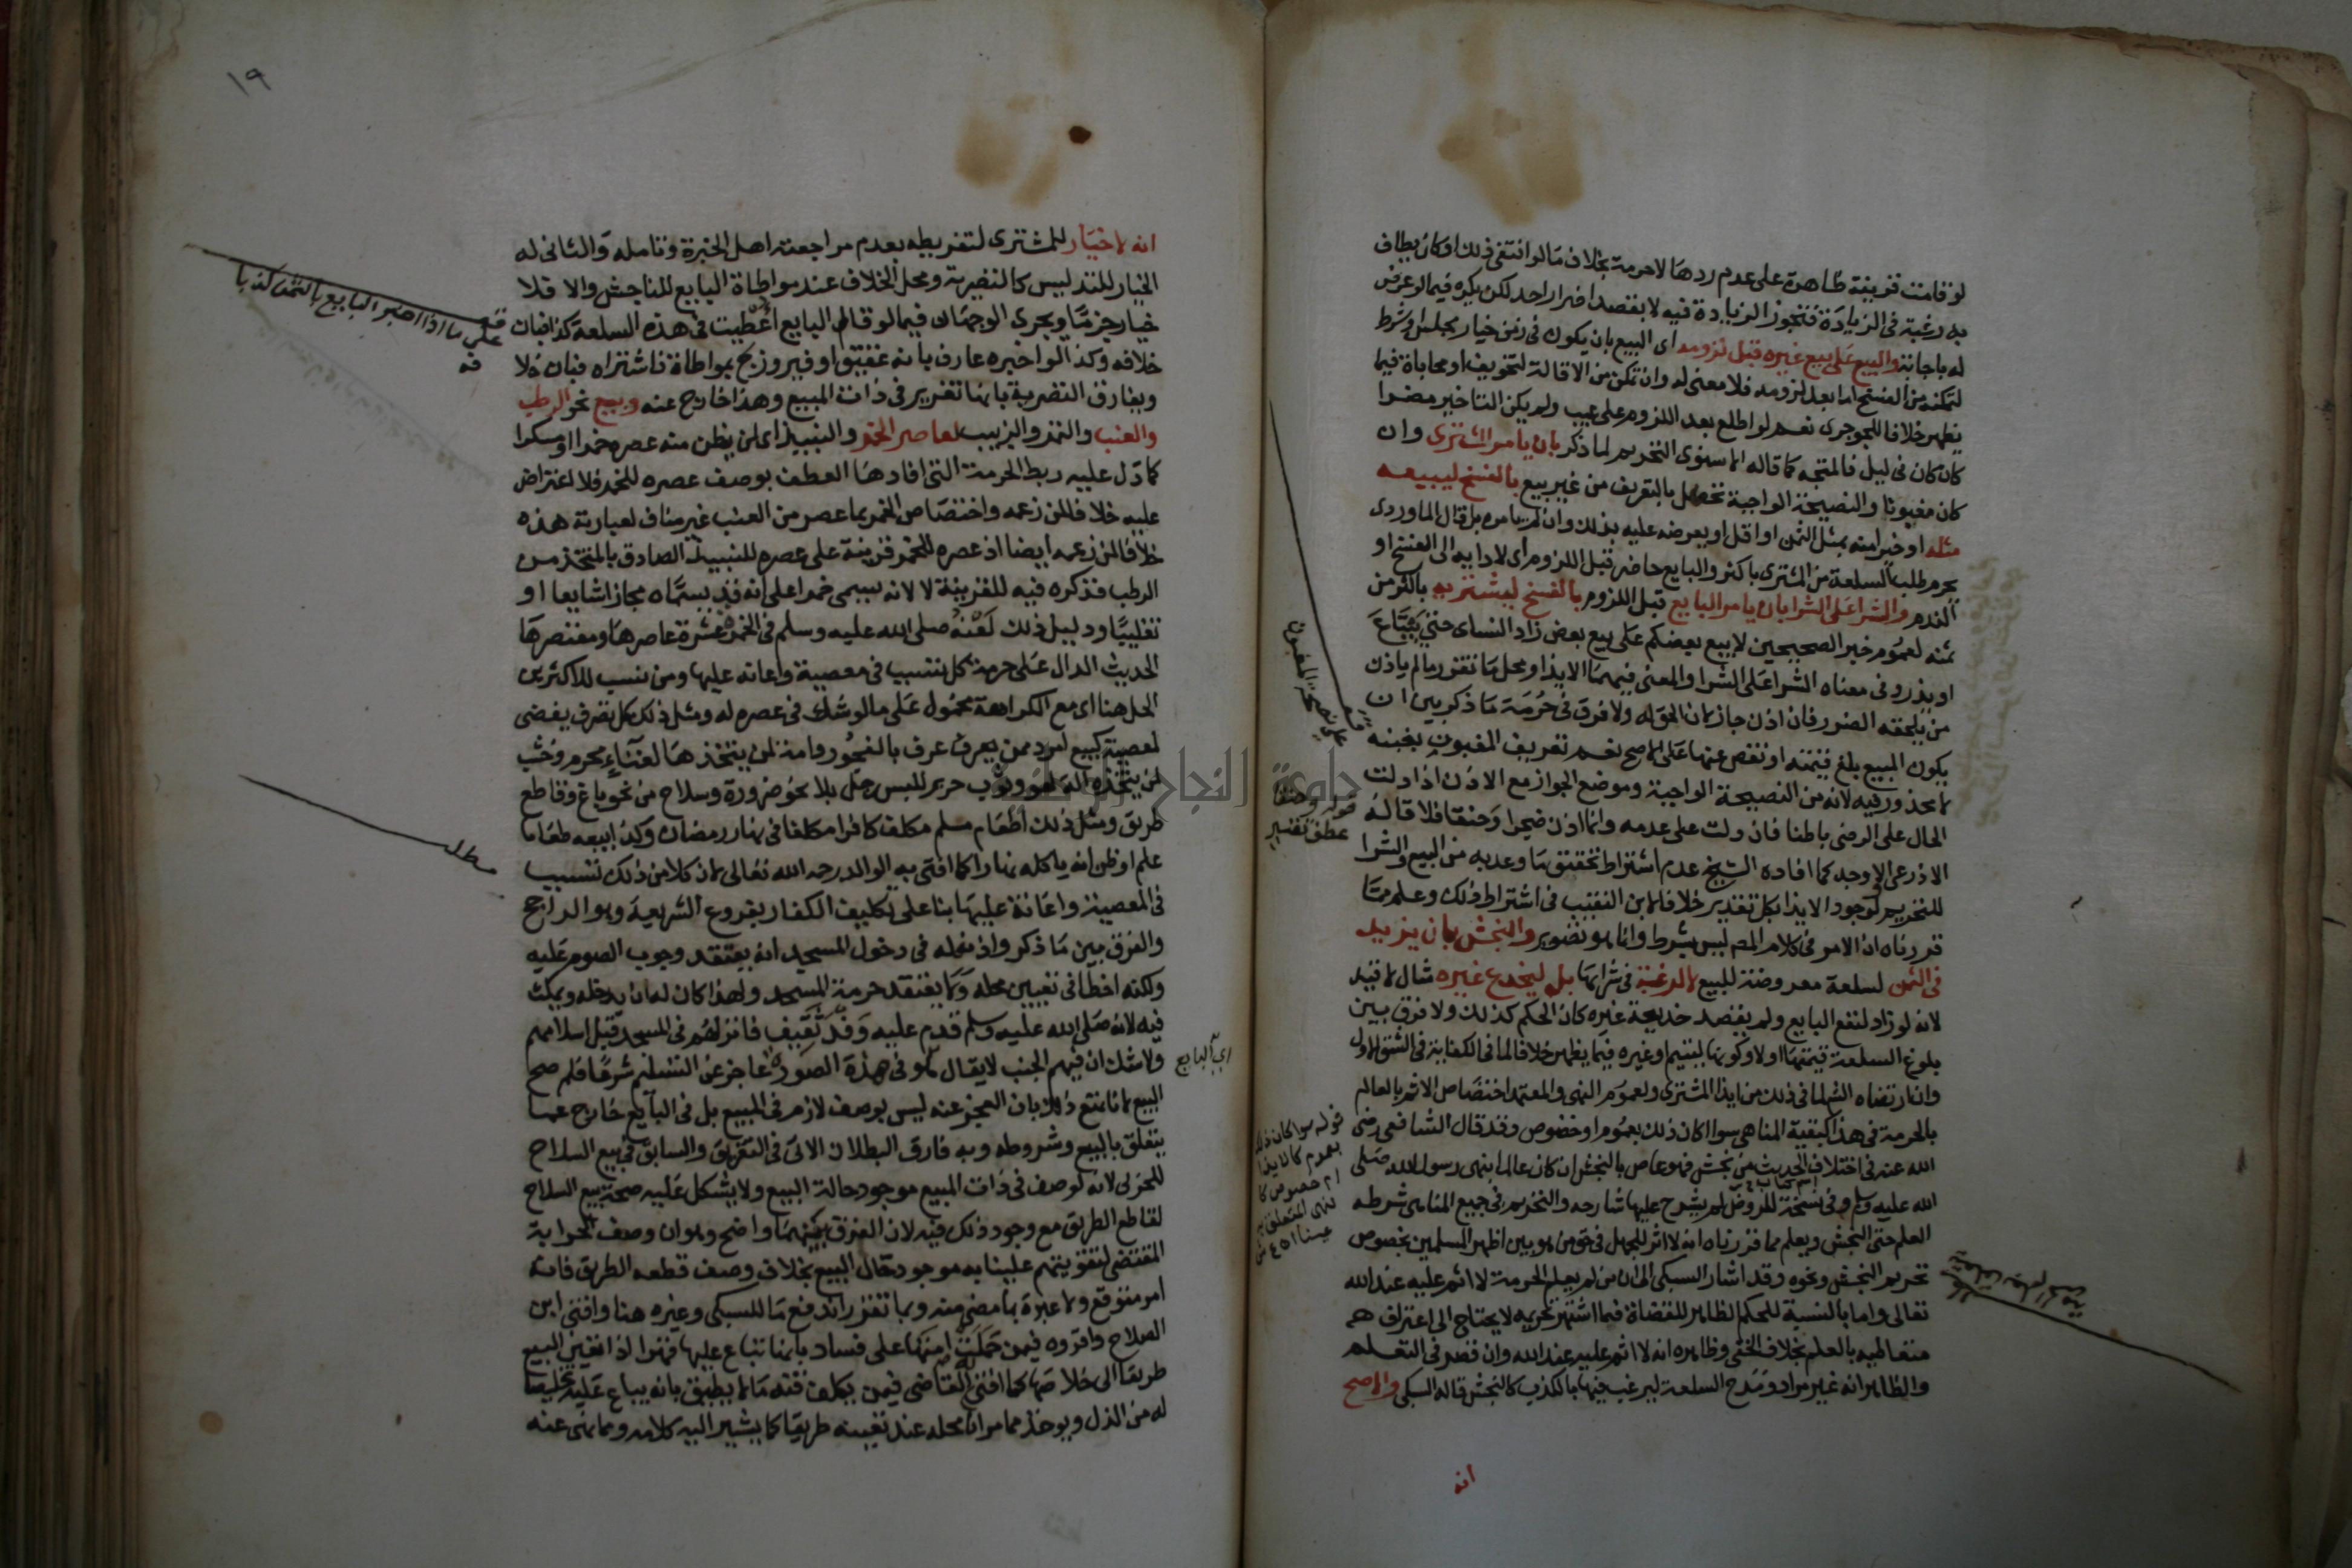 لو قامت قرينة ظاهرة على عدم ردها لا حرمة بخلاف ما لو انتفى ذلك او كان يطاف
به رغبة في الزيادة فتجوز الزيادة فيه لا بقصد اضرار احد لكن يكره فيما لو عرض
له باجابة والبيع على بيع غيره قبل لزومه اى البيع بان يكون في زمن خيار مجلس او شرط
لتمكنه من الفسخ اما بعد لزومه فلا معنى له وان تمكن من الاقالة لتخويف او محاباة فيما
يظهر خلافا للجوجرى نعم لو اطلع بعد اللزوم على عيب ولم يكن التاخير مضرا
كان كان في ليل فالمتجه كما قاله الاسنوى التحريم لما ذكر بان يامر المشترى وان
كان مغبونا والنصيحة الواجبة تحصل بالتعريف من غير بيع بالفسخ ليبيعه
مثله او خيرا منه بمثل الثمن او اقل او يعرضه عليه بذلك وان لم يامره بل قال الماوردى
يحرم طلب السلعة من المشترى باكثر والبايع حاضر قبل اللزوم اى لادايه الى الفسخ او
الندم والشرا على الشرا بان يامر البايع قبل اللزوم بالفسخ ليشتريه باكثر من
ثمنه لعموم خبر الصحيحين لا يبيع بعضكم على بيع بعض زاد النساى حتى يبتاع
او يذر وفى معناه الشرا على الشرا والمعنى فيهما الايذا ومحل ما تقرر ما لم ياذن
من يلحقه الضرر فان اذن جاز لان الحق له ولا فرق في حرمة ما ذكر بين ان
يكون المبيع بلغ قيمته او نقص عنها على الاصح نعم تعريف المغبون بغبنه
لا محذور فيه لانه من النصيحة الواجبة وموضع الجواز مع الاذن اذا دلت
الحال على الرضى باطنا فان دلت على عدمه وانما اذن ضجرا وحنقا فلا قاله
الاذرعى الاوجه كما افاده الشيخ عدم اشتراط تحقق ما وعد به من البيع والشرا
للتحريم لوجود الايذا بكل تقدير خلافا لابن النقيب في اشتراط ذلك وعلم مما
قررناه ان الامر في كلام المص ليس بشرط وانما هو تصوير والنجش بان يزيد
في الثمن لسلعة معروضة للبيع لا لرغبة في شرائها بل ليخدع غيره مثال لا قيد
لانه لو زاد لنفع البايع ولم يقصد خديعة غيره كان الحكم كذلك ولا فرق بين
بلوغ السلعة قيمتها او لا وكونها ليتيم او غيره فيما يظهر خلافا لما في الكفاية في الشق الاول
وان ارتضاه الشهاب في ذلك من ايذا المشترى ولعموم النهى والمعتمد اختصاص الاثم بالعالم
بالحرمة في هذا كبقية المناهى سوا كان ذلك بعموم او خصوص وقد قال الشافعى رضى
الله عنه في اختلاف الحديث من نجش فهو عاص بالنجش ان كان عالما بنهى رسول الله صلى
الله عليه وسلم وفي نسخة للروض لم يشرح عليها شارحه والتحريم في جميع المناهى شرطه
العلم حتى النجش ويعلم مما قررناه انه لا اثر للجهل في حق من هو بين اظهر المسلمين بخصوص
تحريم النجش ونحوه وقد اشار السبكى الى ان من لم يعلم الحرمة لا اثم عليه عند الله
تعالى واما بالنسبة للحكم الظاهر للقضاة فما اشتهر تحريمه لا يحتاج الى اعتراف
متعاطيه بالعلم بخلاف الخفى وظاهره انه لا اثم عليه عند الله وان قصر في التعلم
والظاهر انه غير مراد ومدح السلعة ليرغب فيها بالكذب كالنجش قاله السبكى والاصح
انه
على نصيحة المغبون
قوله وحنقا
عطف تفسير
قوله سوا كان ذلك
بعموم كالايذا
ام خصوص كا
لنهى المتعلق
١٩
انه لا خيار للمشترى لتفريطه بعدم مراجعته اهل الخبرة وتامله والثانى له
الخيار للتدليس كالتصرية ومحل الخلاف عند مواطاة البايع للناجش والا فلا
خيار جزما ويجرى الوجهان فيما لو قال البايع اعطيت في هذه السلعة كذا فبان
خلافه وكذا لو اخبره عارف بانه عقيق او فيروزج بمواطاة فاشتراه فبان خلا
ويفارق التصرية بانها تغرير في ذات المبيع وهذا خارج عنه وبيع نحو الرطب
والعنب والتمر والزبيب لعاصر الخمر والنبيذ اى لمن يظن منه عصره خمرا او مسكرا
كما دل عليه ربط الحرمة التى افادها العطف بوصف عصره للخمر فلا اعتراض
عليه خلافا لمن زعمه واختصاص الخمر بما عصر من العنب غير مناف لعبارته هذه
خلافا لمن زعمه ايضا اذ عصره للخمر قرينة على عصره للنبيذ الصادق بالمتخذ من
الرطب فذكره فيه للقرينة لا لانه يسمى خمرا على انه قد يسماه مجازا شايعا او
تغليبا ودليل ذلك لعنه صلى الله عليه وسلم في الخمر عشرة عاصرها ومعتصرها
الحديث الدال على حرمة كل تسبب في معصية واعانة عليها ومن نسب للاكثرين
الحل هنا اى مع الكراهة محمول على ما لو شك في عصره له ومثل ذلك كل تصرف يفضى
لمعصية كبيع امرد ممن عرف بالفجور وامة لمن يتخذها لغناء محرم وخشب
لمن يتخذه آلة لهو وثوب حرير للبس رجل بلا نحو ضرورة وسلاح من نحو باغ وقاطع
طريق ومثل ذلك اطعام مسلم مكلف كافرا مكلفا في نهار رمضان وكذا بيعه طعاما
علم او ظن انه ياكله نهارا كما افتى به الوالد رحمه الله تعالى لان كلا من ذلك تسبب
في المعصية واعانة عليها بنا على تكليف الكفار بفروع الشريعة وهو الراجح
والفرق بين ما ذكر واذنه له في دخول المسجد انه يعتقد وجوب الصوم عليه
ولكنه اخطا في تعيين محله ولا يعتقد حرمة المسجد ولهذا كان له ان يدخله ويمكث
فيه لانه صلى الله عليه وسلم قدم عليه وفد ثقيف فانزلهم في المسجد قبل اسلامهم
ولا شك ان فيهم الجنب لا يقال هو في هذه الصورة عاجز عن التسليم شرعا فلم صح
البيع لانا نمنع ذلك بان العجز عنه ليس بوصف لازم في المبيع بل في البايع خارج عما
يتعلق بالبيع وشروطه وبه فارق البطلان الاتى في التفريق والسابق في بيع السلاح
للحربى لانه لوصف في ذات المبيع موجود حالة البيع ولا يشكل عليه صحة بيع السلاح
لقاطع الطريق مع وجود ذلك فيه لان الفرق بينهما واضح وهو ان وصف الحرابة
المقتضى لتقويتهم علينا به موجود حال البيع بخلاف وصف قطعه الطريق فانه
امر متوقع ولا عبرة بما مضى منه وبما تقرر اندفع ما للسبكى وغيره هنا وافتى ابن
الصلاح واقروه فيمن حملت امتها على فساد بانها تباع عليها قهرا اذا تعين البيع
طريقا الى خلاصها كما افتى القاضى فيمن يكلف قنه ما لا يطيق بانه يباع عليه تخليصا
له من الذل ويوخذ مما مر ان محله عند تعيينه طريقا كما يشير اليه كلامه ومما نهى عنه
على ما اذا اخبر البايع بالثمن كذبا
مطلب
اى البايع
جامعة النجاح الوطنية